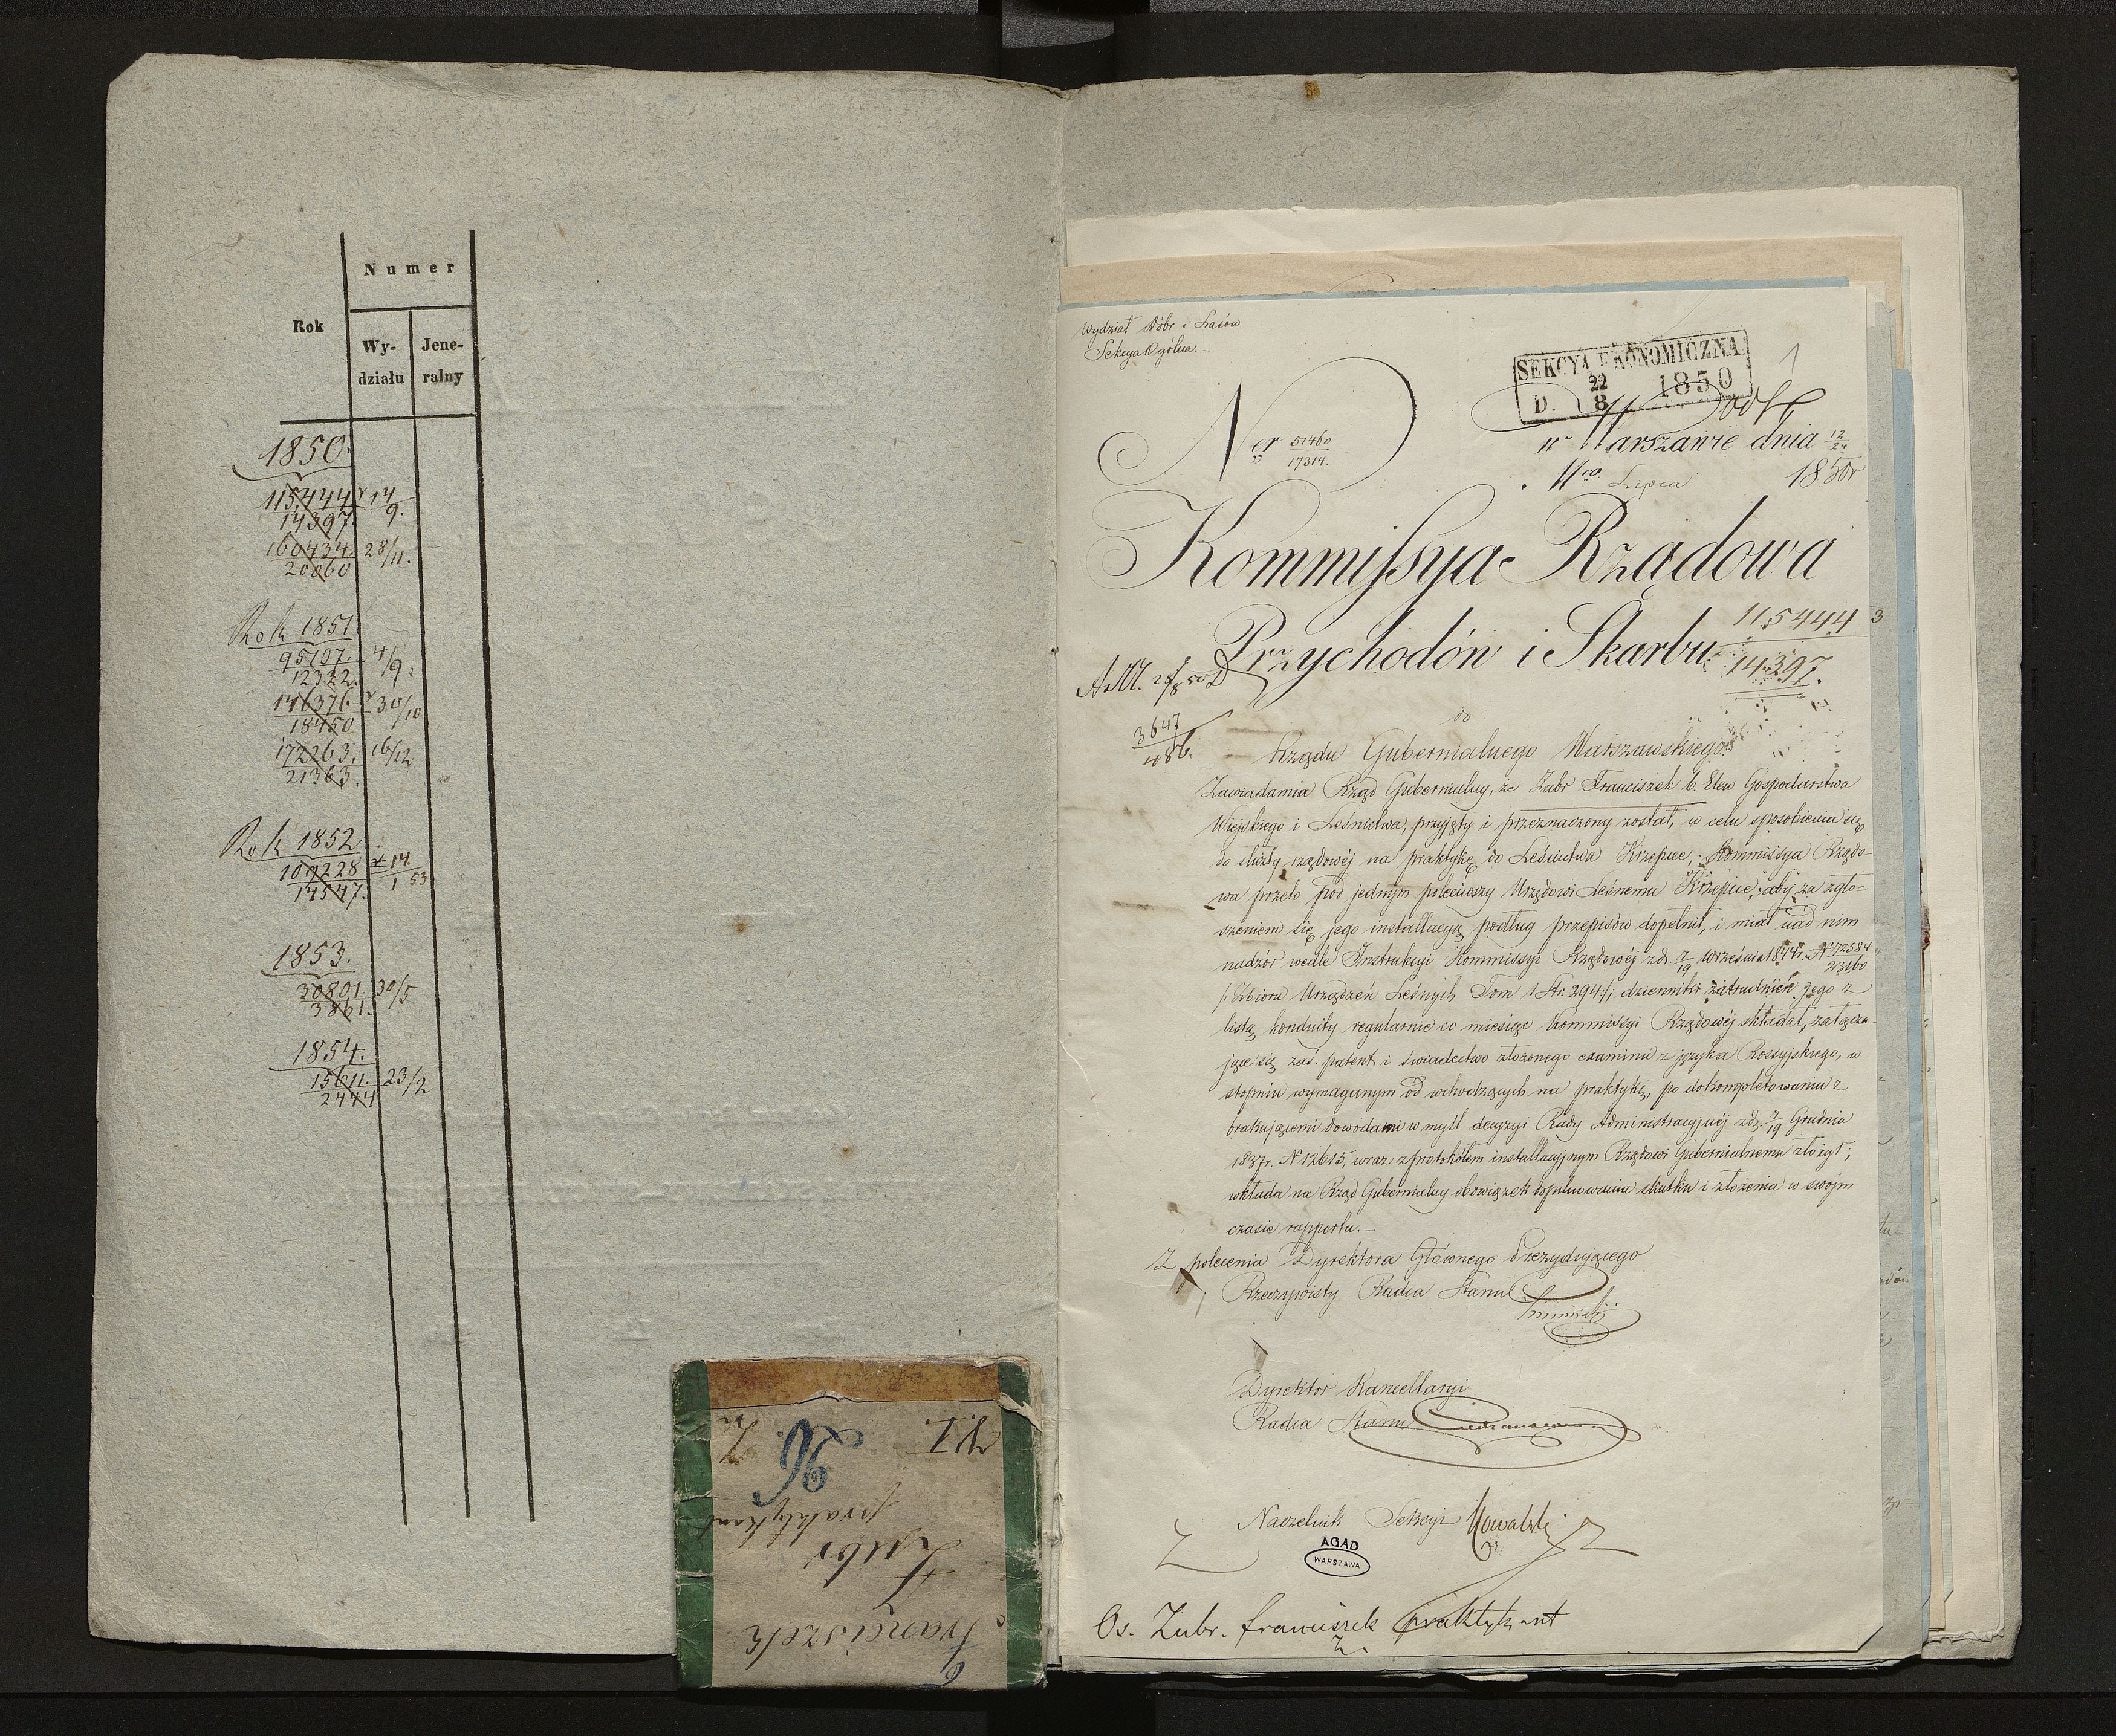 Rok
Numer
Wy-
działu
Jene-
ralny
1850.
115,444 14/9.
14397.
160434. 28/11.
20060
Rok 1851
95107. 4/9.
12322.
146376. 30/10
18450
172263. 16/12
21363.
Rok 1852
109228 14/1 53
14547.
1853.
30801. 30/5
3861.
1854.
15611. 23/2
2444
Franciszek
Żubr
praktykant
Z.
V.I.
Wydział Dóbr i Lasów
Sekcya Ogólna.
SEKCYA EKONOMICZNA
D. 22/8 1850
1
Ner 51460/17314.
w Warszawie dnia 12/24
Lipca 1850r
Kommissya Rządowa
Przychodów i Skarbu
115444
14,397.
3647
486.
do
Rządu Gubernialnego Warszawskiego
Zawiadamia Rząd Gubernialny, że Żubr Franciszek b. Elew Gospodarstwa
Wiejskiego i Leśnictwa, przyjęty i przeznaczony został, w celu sposobienia się
do służby rządowéj na praktykę do Leśnictwa Krzepice, Kommissya Rządo-
wa przeto pod jednym poleciwszy Urzędowi Leśnemu Krzepice, aby za zgło-
szeniem się jego installacyę podług przepisów dopełnił, i miał nad nim
nadzór wedle Instrukcyi Kommissyi Rządowéj z d. 7/19 Września 1844r. N 72584/23160
/: Zbioru Urządzeń Leśnych Tom 1 Str. 294 :/ i dzienniki zatrudnień jego z
listą konduity regularnie co miesiąc Kommissyi Rządowéj składał, załącza-
jące się zaś patent i świadectwo złożonego examinu z języka Rossyjskiego, w
stopniu wymaganym od wchodzących na praktykę, po dokompletowaniu z
brakującemi dowodami w myśl decyzyi Rady Administracyjnéj z d. 7/19 Grudnia
1837r. N 12615, wraz z protokółem installacyjnym Rządowi Gubernialnemu złożył;
wkłada na Rząd Gubernialny obowiązek dopilnowania skutku i złożenia w swojm
czasie rapportu.
Z polecenia Dyrektora Głównego Prezydującego
Rzeczywisty Radca Stanu
Dyrektor Kancellaryi
Radca Stanu
Naczelnik Sekcyi Kowalski
AGAD
WARSZAWA
Os. Żubr. franciszek praktykant